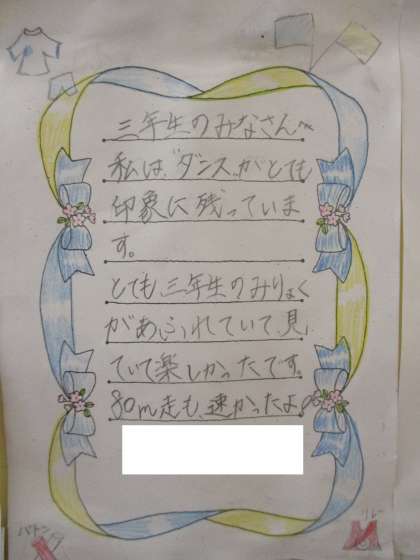 三年生のみなさんへ
私は、ダンスがとても
印象に残っていま
す。
とても、三年生のみりょく
があふれていて、見
ていて楽しかったです。
80m走も、速かったよ。
バトン
リレー